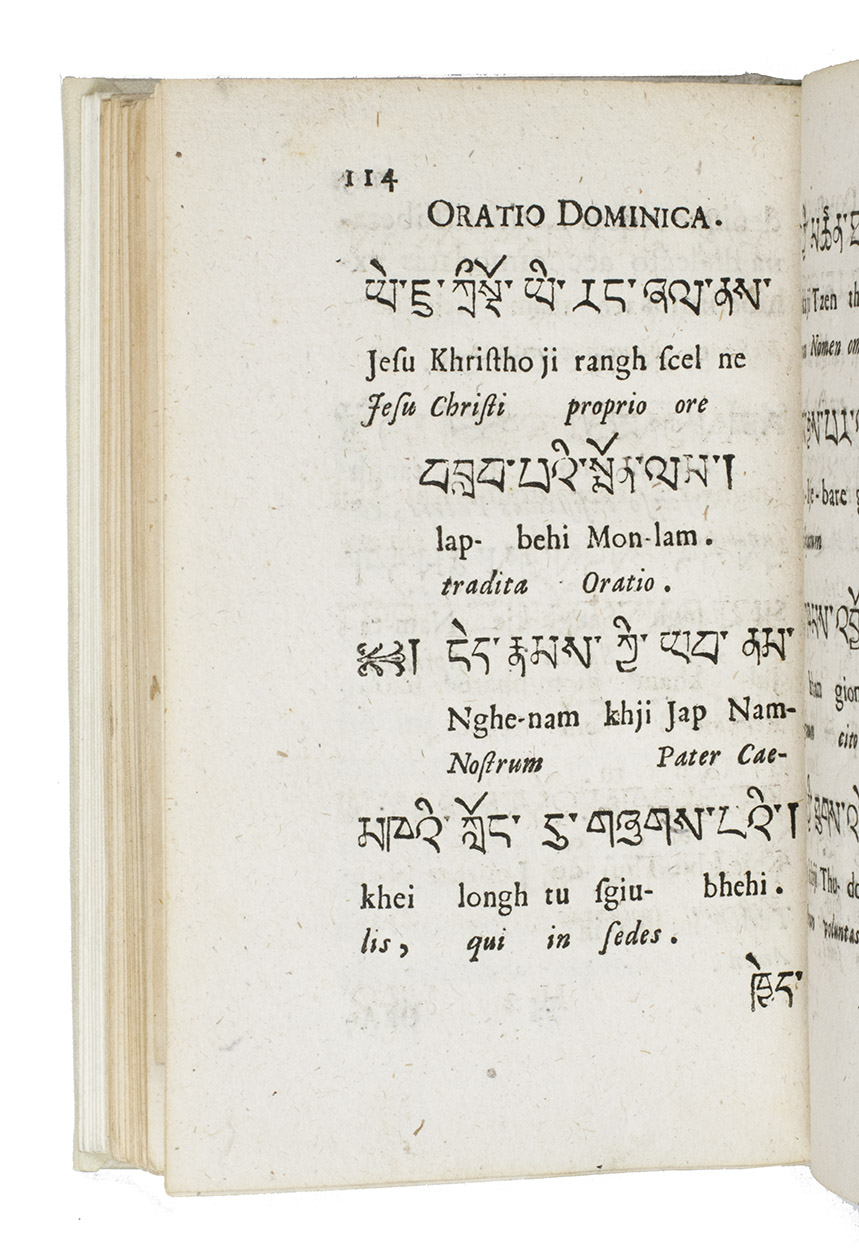 114
ORATIO DOMINICA.
ཡེ་ཇུ་ ཀྲིསྡོ་ ཡི་ རང་ ཞལ་ནས་
Jeſu Khriſtho ji rangh ſcel ne
Jeſu Chriſti proprio ore
བསླབ་ པའི་སྨོན་ལམ།
lap- behi Mon-lam.
tradita Oratio.
༄༅། ངེད་ རྣམས་ ཀྱི་ ཡབ་ ནམ་
Nghe-nam khji Jap Nam-
Noſtrum Pater Cae-
མཁའི་ ཀློང་ དུ་ གཞུགས་པའི།
khei longh tu ſgiu- bhehi.
lis, qui in ſedes.
ཁྱེད་
Nomen
cito
voluntas